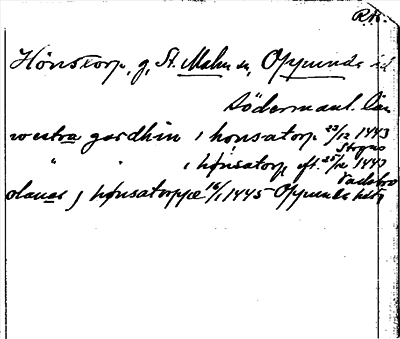 R.A.
Hönstorp, g, St. Malm sn, Oppunda hd
Södermanl. län
westra gardhin i honsatorp 23/12 1443
Strgns
" " i hønsatorp eft. 25/12 1443
Vadstena
olauer j hønsatorppæ 16/1 1445 Oppunda hdrg